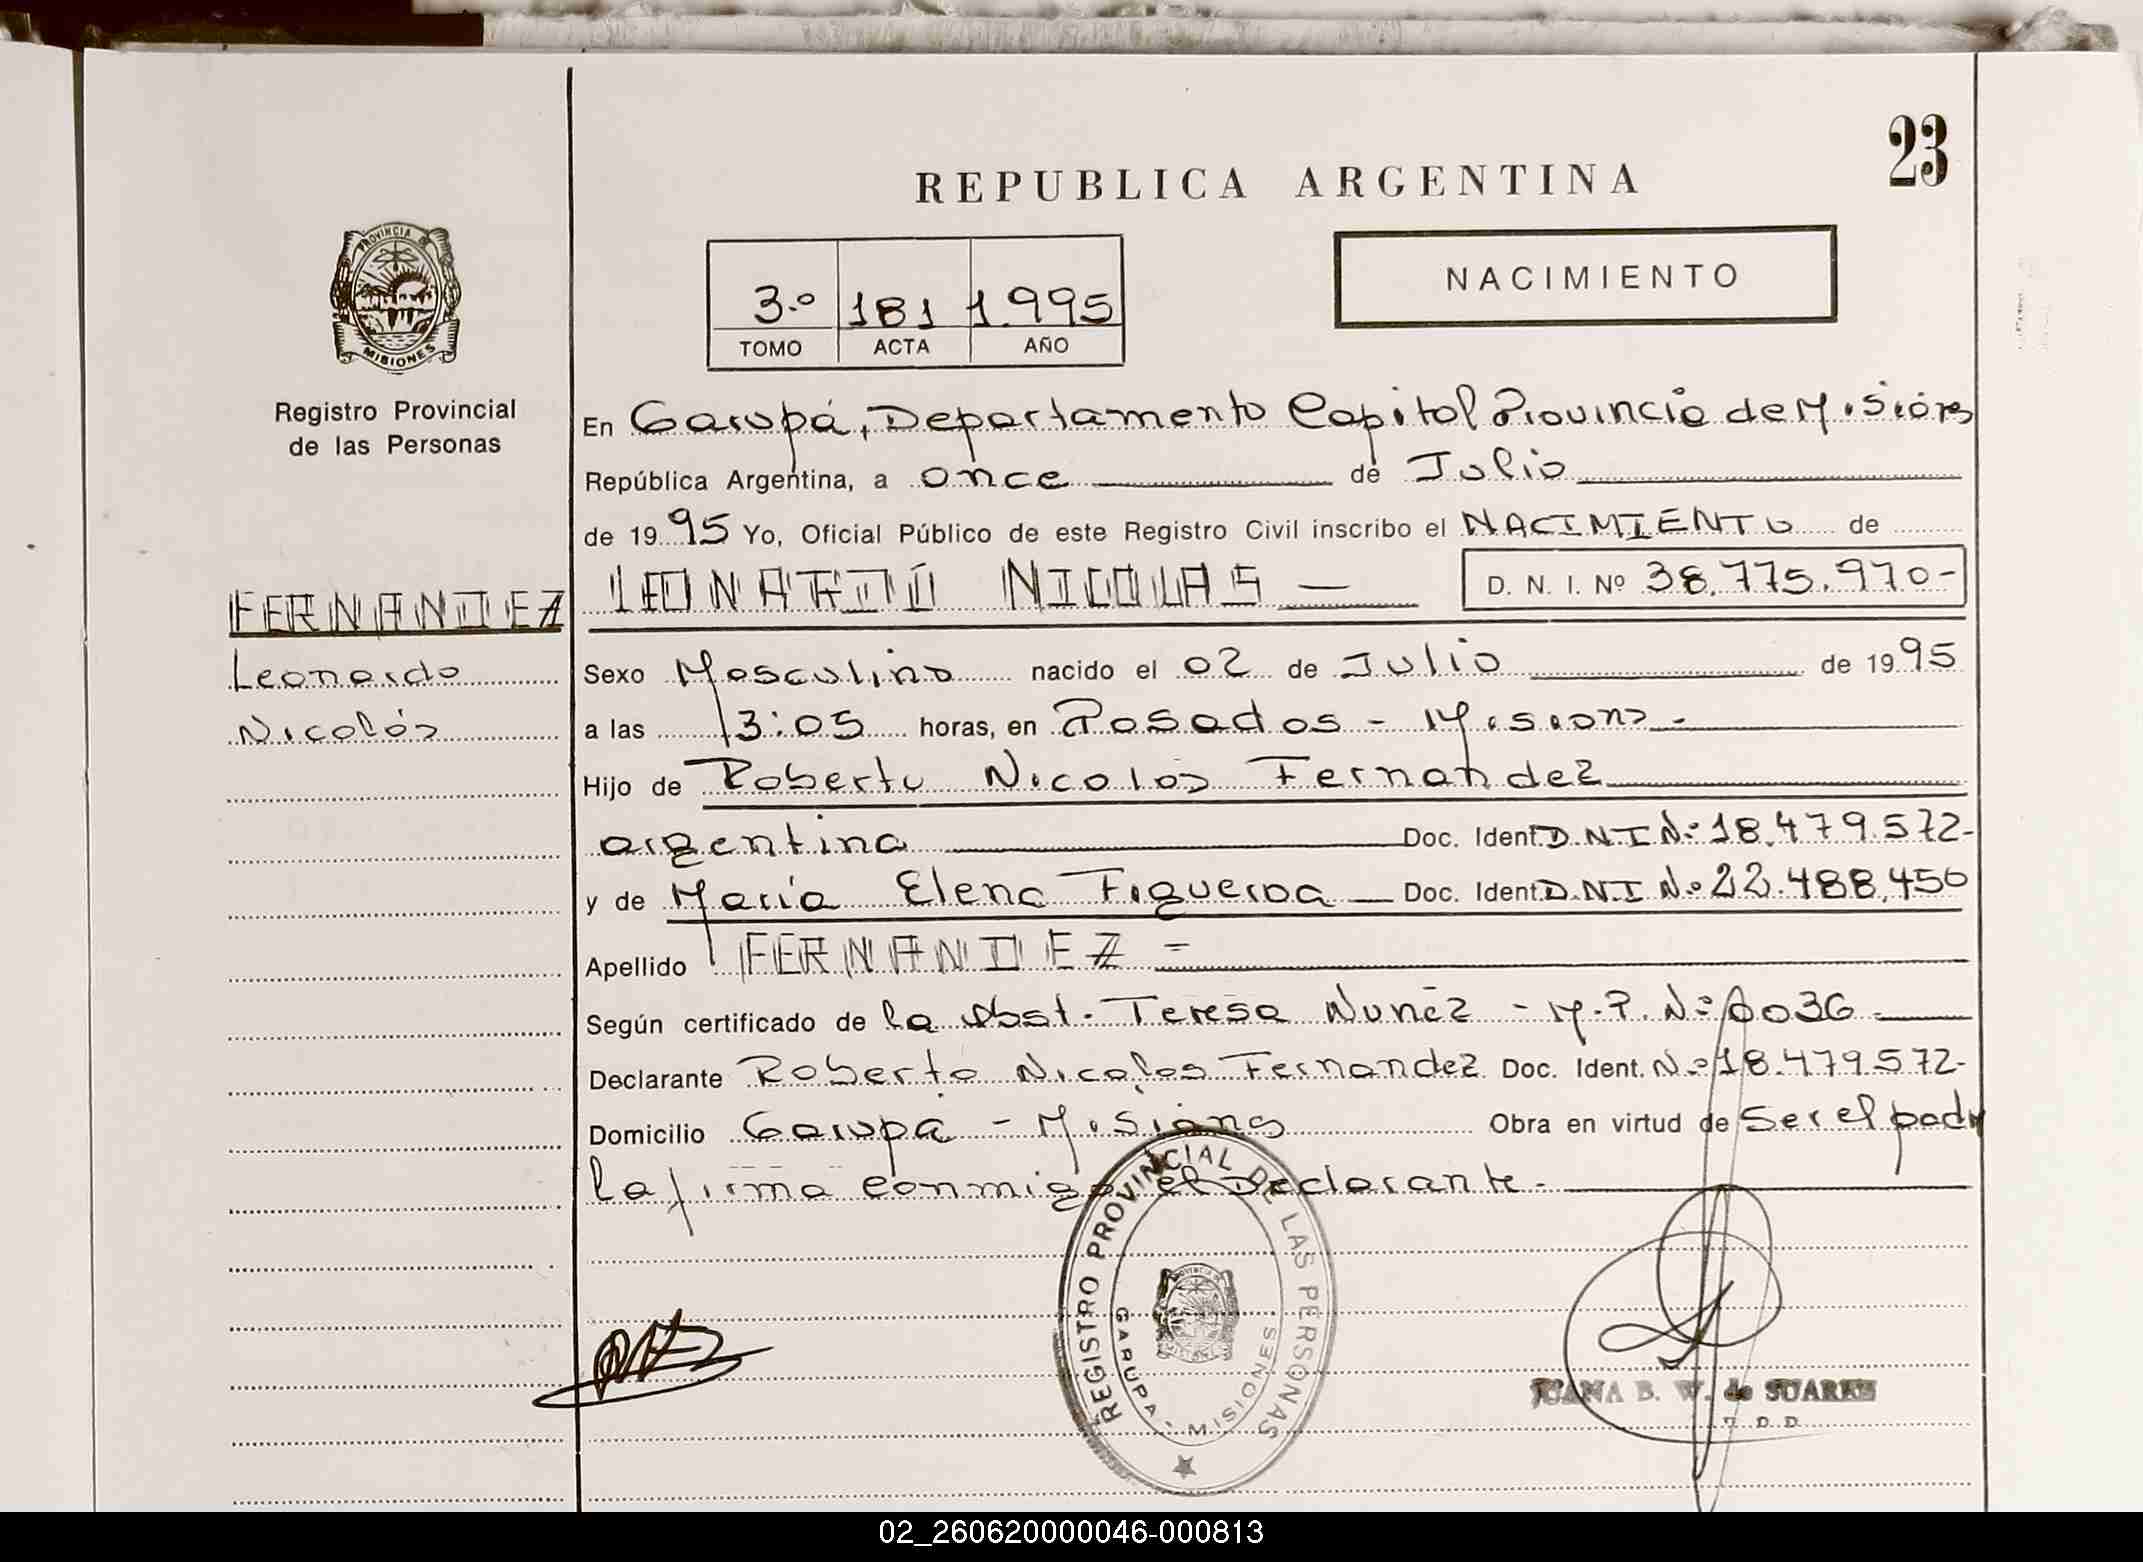 23
REPUBLICA ARGENTINA
NACIMIENTO
3.º 181 1.995
TOMO ACTA AÑO
PROVINCIA DE
MISIONES
Registro Provincial
de las Personas
En Garupá, Departamento Capital Provincia de Misiones
República Argentina, a once de Julio
de 1995 Yo, Oficial Público de este Registro Civil inscribo el NACIMIENTO de
FERNANDEZ
Leonardo
Nicolás
LEONARDO NICOLAS — D. N. I. Nº 38.775.970-
Sexo Masculino nacido el 02 de Julio de 1995
a las 13:05 horas, en Posadas - Misiones -
Hijo de Roberto Nicolás Fernandez
argentina Doc. Ident. D.N.I Nº 18.479.572-
y de María Elena Figueroa Doc. Ident. D.N.I Nº 22.488.450
Apellido FERNANDEZ -
Según certificado de la Obst. Teresa Nuñéz - M.P. Nº 0036
Declarante Roberto Nicolas Fernandez Doc. Ident. Nº 18.479.572-
Domicilio Garupá - Misiones Obra en virtud de Ser el padre
la firma conmigo el Declarante.
REGISTRO PROVINCIAL DE LAS PERSONAS
GARUPA - MISIONES
JUANA B. W. de SUAREZ
02_260620000046-000813